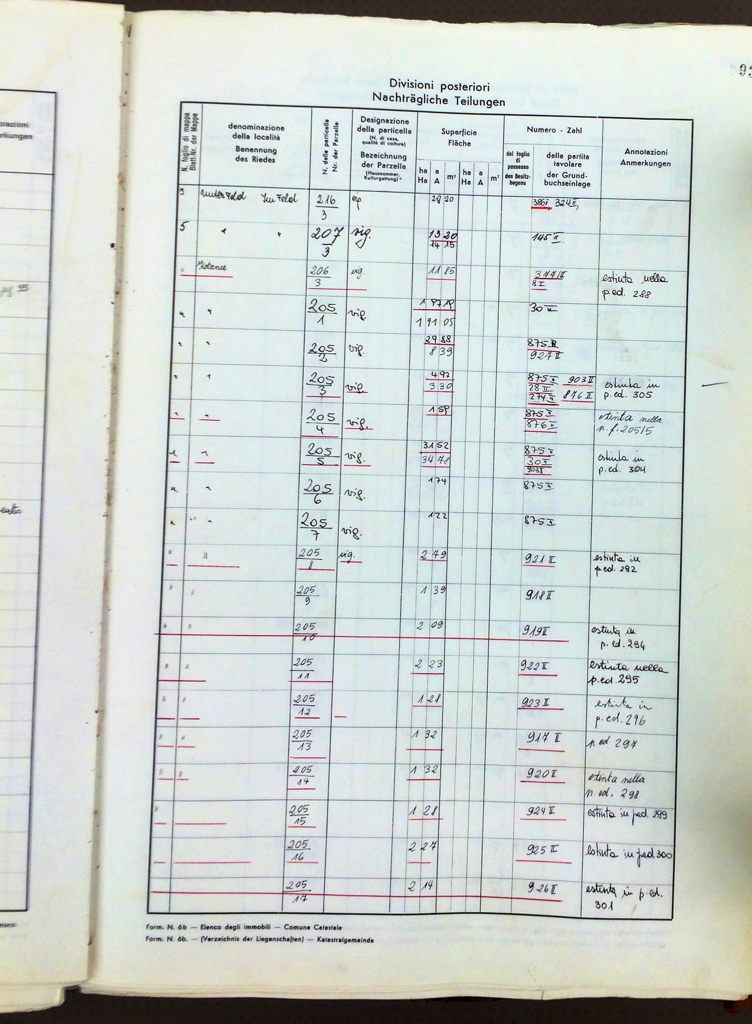 Divisioni posteriori
Nachträgliche Teilungen
N. foglio di mappa
Blatt-Nr. der Mappe
denominazione
della località
Benennung
des Riedes
N. della particella
Nr. der Parzelle
Designazione
della particella
(N. di casa,
qualità di coltura)
Bezeichnung
der Parzelle
(Hausnummer,
Kulturgattung)
Superficie
Fläche
ha a m² ha a m²
Ha A Ha A
Numero - Zahl
del foglio di
possesso
des Besitz-
bogens
della partita
tavolare
der Grund-
buchseinlage
Annotazioni
Anmerkungen
Unterfeld Im Feld 216/3 29 20 324 II
5 " " 207/3 vig. 19 20 145 II
14 15
206/3 vig. 11 85 344 II estinta nella
8 I p.ed. 288
" " 205/1 vig. 30 II
1 91 05
" " 205/2 vig. 29 88 875 II
8 39 927 II
" " 205/3 vig. 4 97 875 II 903 II estinta in
3 30 28 II 876 II p.ed. 305
274 II
" " 205/4 vig. 1 59 875 II estinta nella
876 II p.f. 205/5
" " 205/5 vig. 31 52 875 II estinta in
34 78 30 II p.ed. 304
903 II
" " 205/6 vig. 1 74 875 II
" " 205/7 vig. 1 22 875 II
" " 205/8 vig. 2 79 921 II estinta in
p.ed. 292
" " 205/9 1 39 918 II
" " 205/10 2 09 919 II estinta in
p.ed. 294
" " 205/11 2 23 922 II estinta nella
p.ed. 295
" " 205/12 1 28 923 II estinta in
p.ed. 296
" " 205/13 1 32 917 II p.ed 297
" " 205/14 1 32 920 II estinta nella
p.ed. 298
205/15 1 28 924 II estinta in p.ed. 299
205/16 2 27 925 II estinta in p.ed. 300
205/17 2 14 926 II estinta in p.ed.
301
Form. N. 6b — Elenco degli immobili — Comune Catastale
Form. N. 6b. — (Verzeichnis der Liegenschaften) — Katastralgemeinde